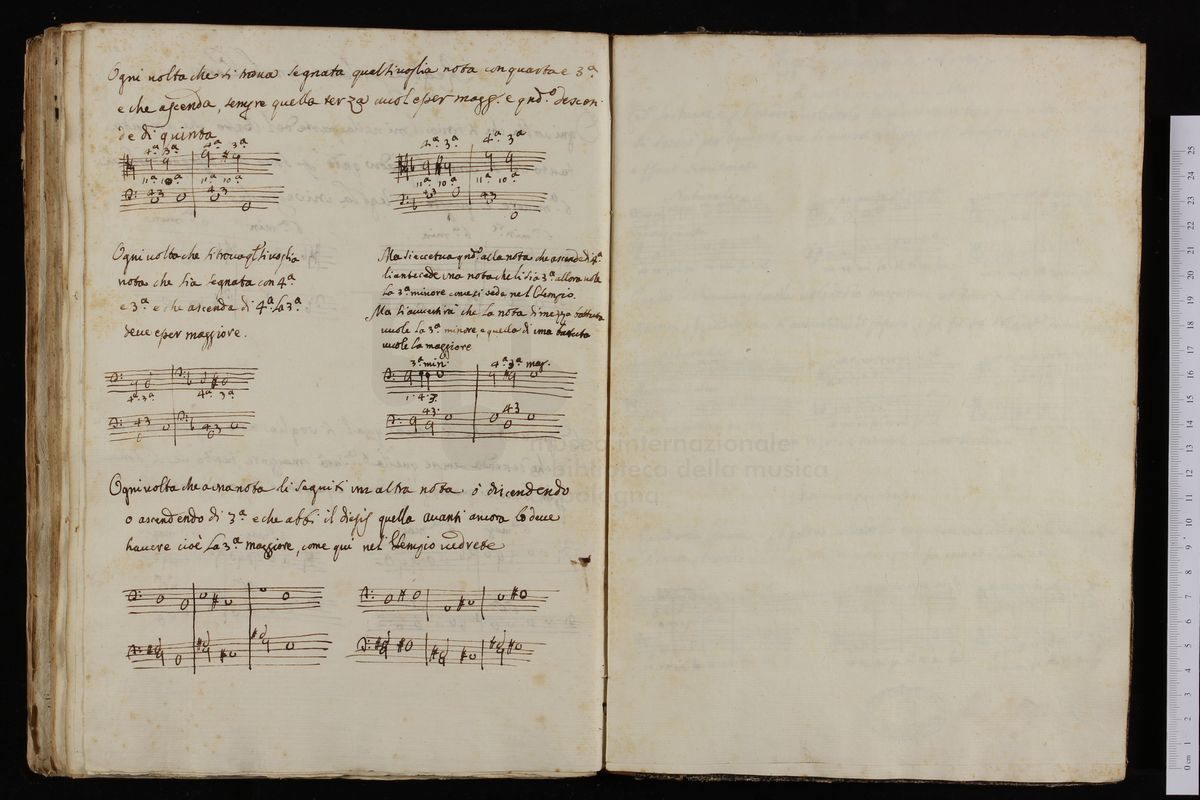 Ogni uolta che si troua segnata qualsiuoglia nota con quarta e 3.ª
e che ascenda, sempre quella terza uuol esser magg. e qnd.º descen-
de di quinta
4.ª 3.ª 4.ª 3.ª
11.ª 10.ª 11.ª 10.ª
43 43
4.ª 3.ª 4.ª 3.ª
11.ª 10.ª 11.ª 10.ª
43 43
Ogni uolta che si troua qlsiuoglia
nota che sia segnata con 4.ª
e 3.ª e che ascenda di 4.ª la 3.ª
deue esser maggiore.
4.ª 3.ª 4.ª 3.ª
43 43
Ma si eccetua qnd.º alla nota che ascende di 4.ª
li antecede una nota che li sia 3.ª allora uole
la 3.ª minore come si uede nel Esempio.
Ma si auuertirà che la nota di mezza battuta
uuole la 3.ª minore, e quella di una battuta
uuole la maggiore
3.ª min. 4.ª 3.ª mag.
1. 4. 3.
43. 43
Ogni uolta che a una nota li seguiti un altra nota ò discendendo
o ascendendo di 3.ª e che abbi il diesis quella auanti ancora lo deue
hauere cioè la 3.ª maggiore, come qui nel Esempio uedrete
museo internazionale
e biblioteca della musica
di bologna
0 cm 1 2 3 4 5 6 7 8 9 10 11 12 13 14 15 16 17 18 19 20 21 22 23 24 25